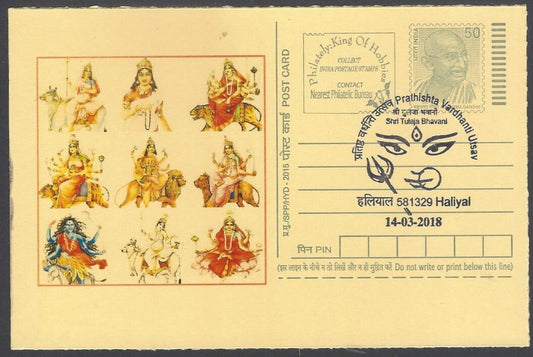 Philately: King Of Hobbies
COLLECT
INDIA POSTAGE STAMPS
CONTACT
Nearest Philatelic Bureau
भारत INDIA
50
प्र.मु./SPP/HYD - 2015 पोस्ट कार्ड POST CARD
Prathishta Vardhanti Utsav
श्री तुलजा भवानी
Shri Tulaja Bhavani
हलियाल 581329 Haliyal
14-03-2018
पिन PIN
(इस लाइन के नीचे न तो लिखें और न ही मुद्रित करें Do not write or print below this line)